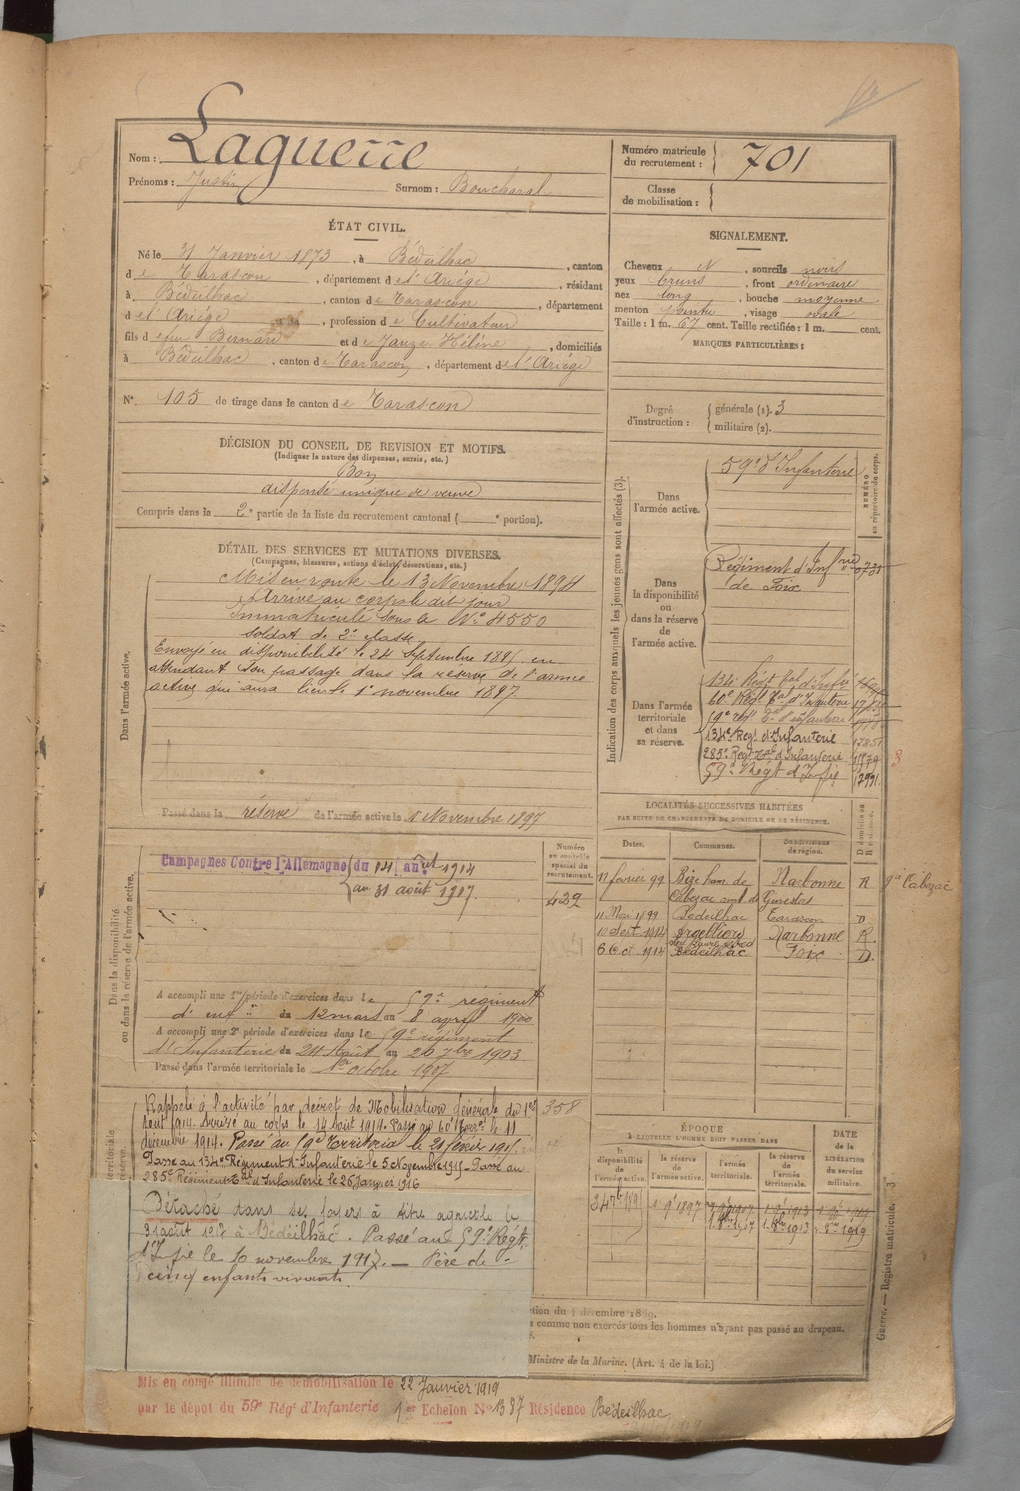 Nom : Laguerre
Prénoms : Justin Surnom : Boucharal
Numéro matricule du recrutement : 701
Classe de mobilisation :
ÉTAT CIVIL.
Né le 31 Janvier 1873, à Bédeilhac, canton
de Tarascon, département de l'Ariège, résidant
à Bédeilhac, canton de Tarascon, département
de l'Ariège, profession de Cultivateur
fils de feu Bernard et de Jauze Hélène, domiciliés
à Bédeilhac, canton de Tarascon, département de l'Ariège
N° 105 de tirage dans le canton de Tarascon
SIGNALEMENT.
Cheveux N, sourcils noirs
yeux bruns, front ordinaire
nez long, bouche moyenne
menton pointu, visage ovale
Taille : 1 m. 67 cent. Taille rectifiée : 1 m. cent.
MARQUES PARTICULIÈRES :
Degré d'instruction : générale (1). 3
militaire (2).
DÉCISION DU CONSEIL DE REVISION ET MOTIFS.
(Indiquer la nature des dispenses, sursis, etc.)
Bon
dispensé unique de veuve
Compris dans la 2e partie de la liste du recrutement cantonal ( e portion).
DÉTAIL DES SERVICES ET MUTATIONS DIVERSES.
(Campagnes, blessures, actions d'éclat, décorations, etc.)
Dans l'armée active.
Mis en route le 13 Novembre 1894
Arrivé au corps le dit jour
Immatriculé sous le N° 4550
Soldat de 2e classe
Envoyé en disponibilité le 24 Septembre 1895 en
attendant son passage dans la réserve de l'armée
active qui aura lieu le 1er novembre 1897.
Passé dans la réserve de l'armée active le 1 Novembre 1897
Indication des corps auxquels les jeunes gens sont affectés (3).
NUMÉRO au répertoire du corps.
Dans l'armée active.
59e d'Infanterie
Dans la disponibilité ou dans la réserve de l'armée active.
Régiment d'Infrie
de Foix
Dans l'armée territoriale et dans sa réserve.
134e Régt Tal d'Infie
60e Régt Tal d'Infanterie
59e régt Tal d'infanterie
134e Regt d'Infanterie 1785
285e Regt Tal d'Infanterie 11979
59e Régt d'Infie 12991
3
LOCALITÉS SUCCESSIVES HABITÉES
PAR SUITE DE CHANGEMENTS DE DOMICILE OU DE RÉSIDENCE.
Dates. Communes. Subdivisions de région. D domicile ou R résidence.
12 février 99 Bize ham. de Narbonne R
Cabezac cant. de Ginestas
Cabezac
11 Mai 1899 Bédeilhac Tarascon D
10 Sept 1912 Argelliers Narbonne R
6 Oct 1914 Bédeilhac Foix D
Dans la disponibilité ou dans la réserve de l'armée active.
Numéro au contrôle spécial du recrutement.
429
Campagnes Contre l'Allemagne du 14 août 1914
au 31 août 1917.
A accompli une 1re période d'exercices dans le 59e régiment
d'inf du 12 mars au 8 avril 1900
A accompli une 2e période d'exercices dans le 59e régiment
d'Infanterie du 24 Août au 20 7bre 1903
Passé dans l'armée territoriale le 1er octobre 1907
358
Rappelé à l'activité par décret de Mobilisation Générale du 1er
Aout 1914. Arrivé au corps le 14 Août 1914. Passé au 60e Terral le 11
décembre 1914. Passé au 59e Territorial le 21 février 1915.
Passé au 134e Régiment d'Infanterie le 5 Novembre 1915 - Passé au
285e Régiment Tal d'Infanterie le 26 Janvier 1916
Détaché dans ses foyers à titre agricole le
31 aout 1917 à Bédeilhac. Passé au 59e Régt
d'Infie le 10 novembre 1917. — Père de
cinq enfants vivants.
ÉPOQUE
A LAQUELLE L'HOMME DOIT PASSER DANS
la disponibilité de l'armée active. la réserve de l'armée active. l'armée territoriale. la réserve de l'armée territoriale.
DATE de la LIBÉRATION du service militaire.
1 9bre 1897
1. 8bre 1907 1. 8bre 1913 1. 8bre 1919
ction du 4 décembre 1889.
s comme non exercés tous les hommes n'ayant pas passé au drapeau.
Ministre de la Marine. (Art. 4 de la loi.)
Guerre. — Registre matricule. 3
Mis en congé illimité de démobilisation le 22 Janvier 1919
par le dépôt du 59e Régt d'Infanterie 1er Echelon N° 1387 Résidence Bédeilhac